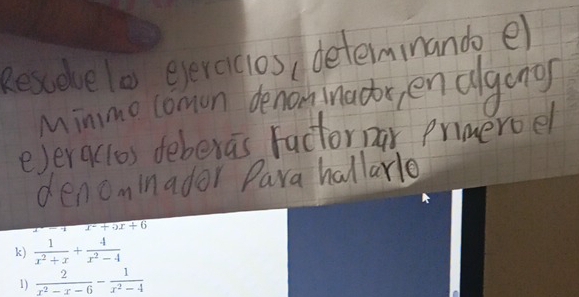 Resuelve los ejercicios, determinando el
Minimo comun denominador, en algunos
ejercicios deberás Factorizar primero el
denominador Para hallarlo
x² + 5x + 6
k) 1/(x² + x) + 4/(x² − 4)
l) 2/(x² − x − 6) − 1/(x² − 4)